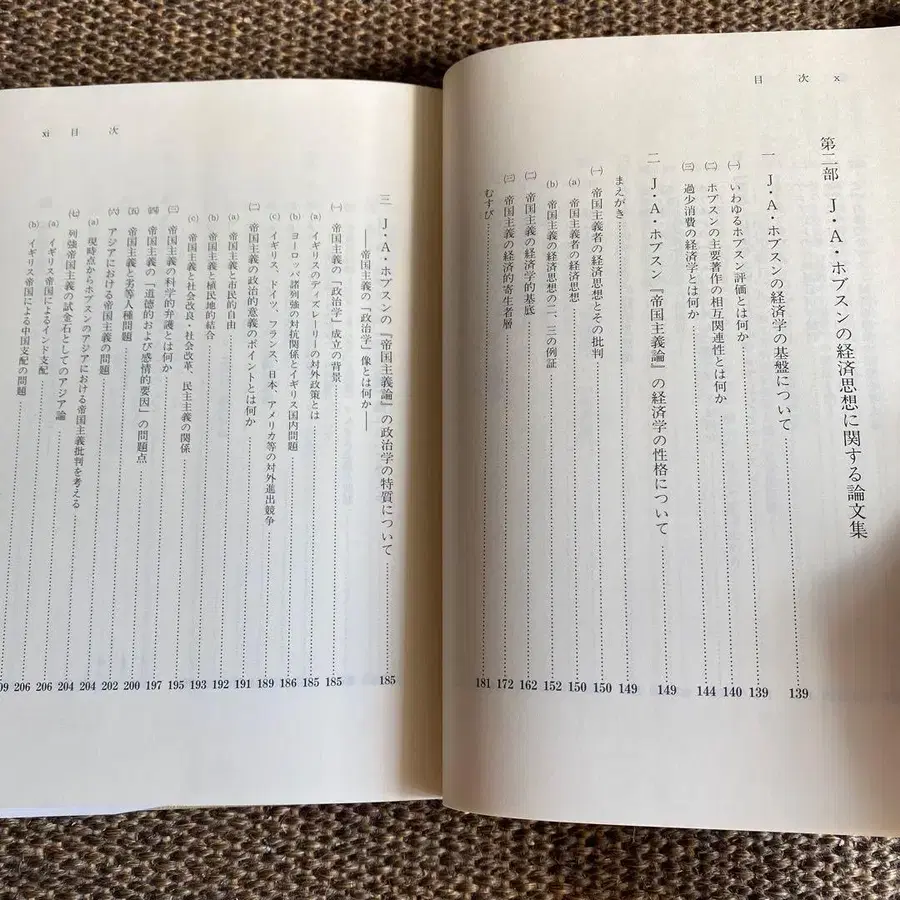 目　次　x
第二部　J・A・ホブスンの経済思想に関する論文集
一　J・A・ホブスンの経済学の基盤について……139
㈠　いわゆるホブスン評価とは何か……139
㈡　ホブスンの主要著作の相互関連性とは何か……140
㈢　過少消費の経済学とは何か……144
二　J・A・ホブスン『帝国主義論』の経済学の性格について……149
まえがき……149
㈠　帝国主義者の経済思想とその批判……150
(a)　帝国主義者の経済思想……150
(b)　帝国主義の経済思想の二、三の例証……152
㈡　帝国主義の経済学的基底……162
㈢　帝国主義の経済的寄生者層……172
むすび……181
xi　目　次
三　J・A・ホブスンの『帝国主義論』の政治学の特質について……185
――帝国主義の「政治学」像とは何か――
㈠　帝国主義の「政治学」成立の背景……185
(a)　イギリスのディズレーリーの対外政策とは……185
(b)　ヨーロッパ諸列強の対抗関係とイギリス国内問題……186
(c)　イギリス、ドイツ、フランス、日本、アメリカ等の対外進出競争……189
㈡　帝国主義の政治的意義のポイントとは何か……191
(a)　帝国主義と市民的自由……192
(b)　帝国主義と植民地的結合……193
(c)　帝国主義と社会改良・社会改革、民主主義の関係……195
㈢　帝国主義の科学的弁護とは何か……197
㈣　帝国主義の「道徳的および感情的要因」の問題点……200
㈤　帝国主義と劣等人種問題……202
㈥　アジアにおける帝国主義の問題……204
(a)　現時点からホブスンのアジアにおける帝国主義批判を考える……204
㈦　列強帝国主義の試金石としてのアジア論……206
(a)　イギリス帝国によるインド支配……206
(b)　イギリス帝国による中国支配の問題……209